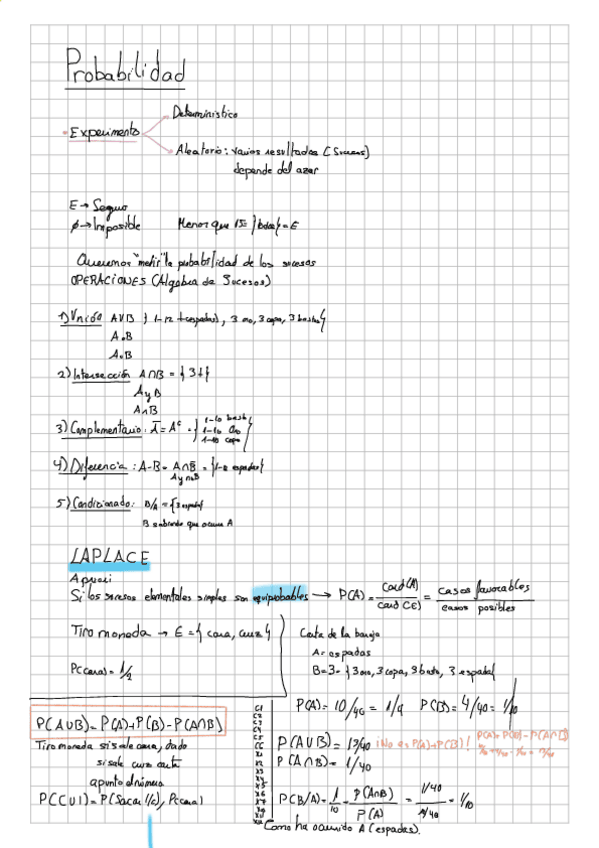 Probabilidad
Experimento
Determinístico
Aleatorio: varios resultados (Sucesos)
depende del azar
E → Seguro
ϕ → Imposible
Menor que 15
= E
Queremos "medir" la probabilidad de los sucesos
OPERACIONES (Algebra de Sucesos)
1) Unión A∪B } 1-12 + espadas), 3 oro, 3 copa, 3 bastos}
A o B
A ∨ B
2) Intersección A∩B = { 3 }
A y B
A∧B
3) Complementario: Ā = Aᶜ =
1-10 basto
1-10 Oro
1-10 copa
4) Diferencia: A-B = A∩B̄ =
espadas}
A y no B
5) Condicionado: B/A = {3 espada}
B sabiendo que ocurre A
LAPLACE
A priori
Si los sucesos elementales simples son equiprobables → P(A) = card(A) / card(E) = casos favorables / casos posibles
Tiro moneda → E = { cara, cruz }
P(cara) = 1/2
Carta de la baraja
A = espadas
B = 3 = {3 oro, 3 copa, 3 basto, 3 espada}
P(A) = 10/40 = 1/4 P(B) = 4/40 = 1/10
P(A∪B) = P(A)+P(B)-P(A∩B)
Tiro moneda si sale cara, dado
si sale cruz carta
apunto el número
P(C∪1) =
C1
C2
C3
C4
C5
C6
X1
X2
X3
X4
X5
X6
X7
P(A∪B) = 13/40 ¡No es P(A)+P(B)! P(A)+P(B)-P(A∩B)
P(A∩B) = 1/40
P(B/A) = 1/10 = P(A∩B) / P(A) = 1/40 / 10/40 = 1/10
Como ha ocurrido A (espadas).